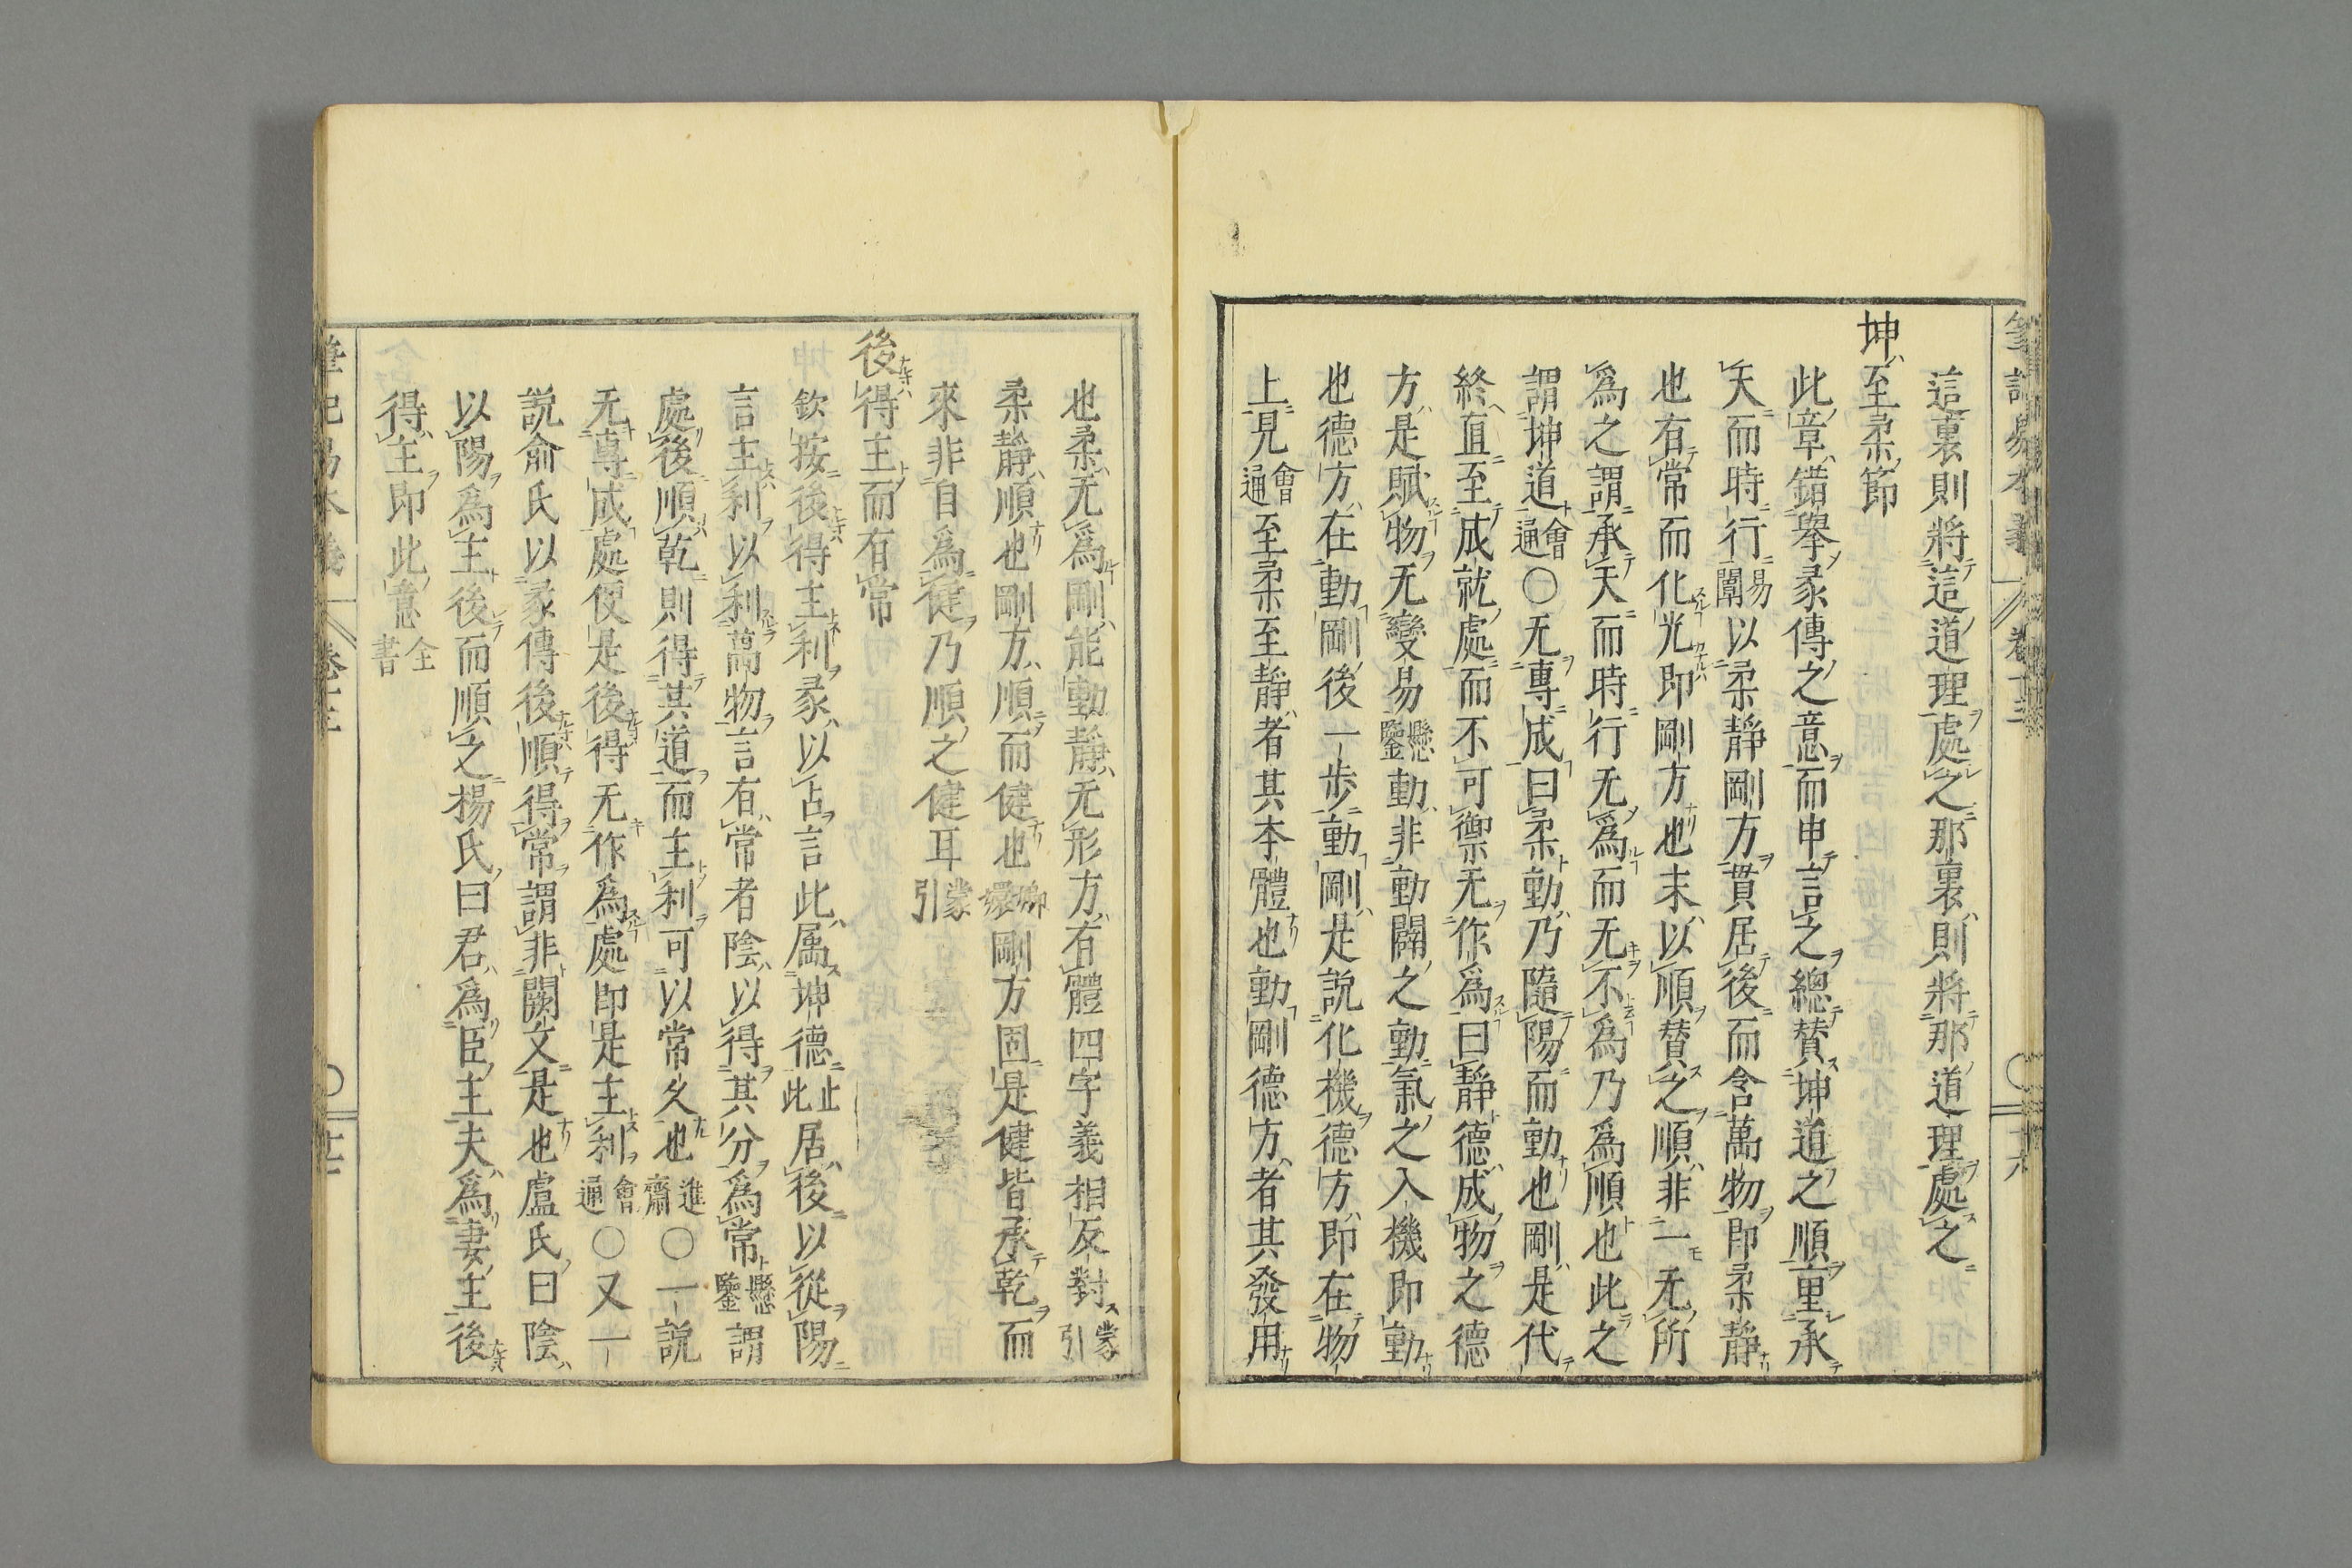 這裏則將這道理處之那裏則將那道理處之
坤至柔節
此章錯擧彖傳之意而申言之總賛坤道之順重承
天而時行易闡以柔静剛方貫居後而含萬物即柔静
也有常而化光即剛方也末以順賛之順非一无所
為之謂承天而時行无為而无不為乃為順也此之
謂坤道會通〇无專成曰柔動乃隨陽而動也剛是代
終直至成就處而不可禦无作為曰静德成物之德
方是賦物无變易懸鑒動非動闢之動氣之入機即動
也德方在動剛後一歩動剛是説化機德方即在物
上見會通至柔至静者其本體也動剛德方者其發用
也柔无為剛能動静无形方有體四字義相反對蒙引
柔静順也剛方順而健也剛方固是健皆承乾而
來非自為健乃順之健耳蒙引
後得主而有常
欽按後得主利彖以占言此属坤德止此居後以從陽
言主利以利萬物言有常者陰以得其分為常懸鑒謂
處後順乾則得其道而主利可以常久也進齋〇一説
无專成處便是後得无作為處即是主利會通〇又一
説俞氏以彖傳後順得常謂非闕文是也盧氏曰陰
以陽為主後而順之楊氏曰君為臣主夫為妻主後
得主即此意全書